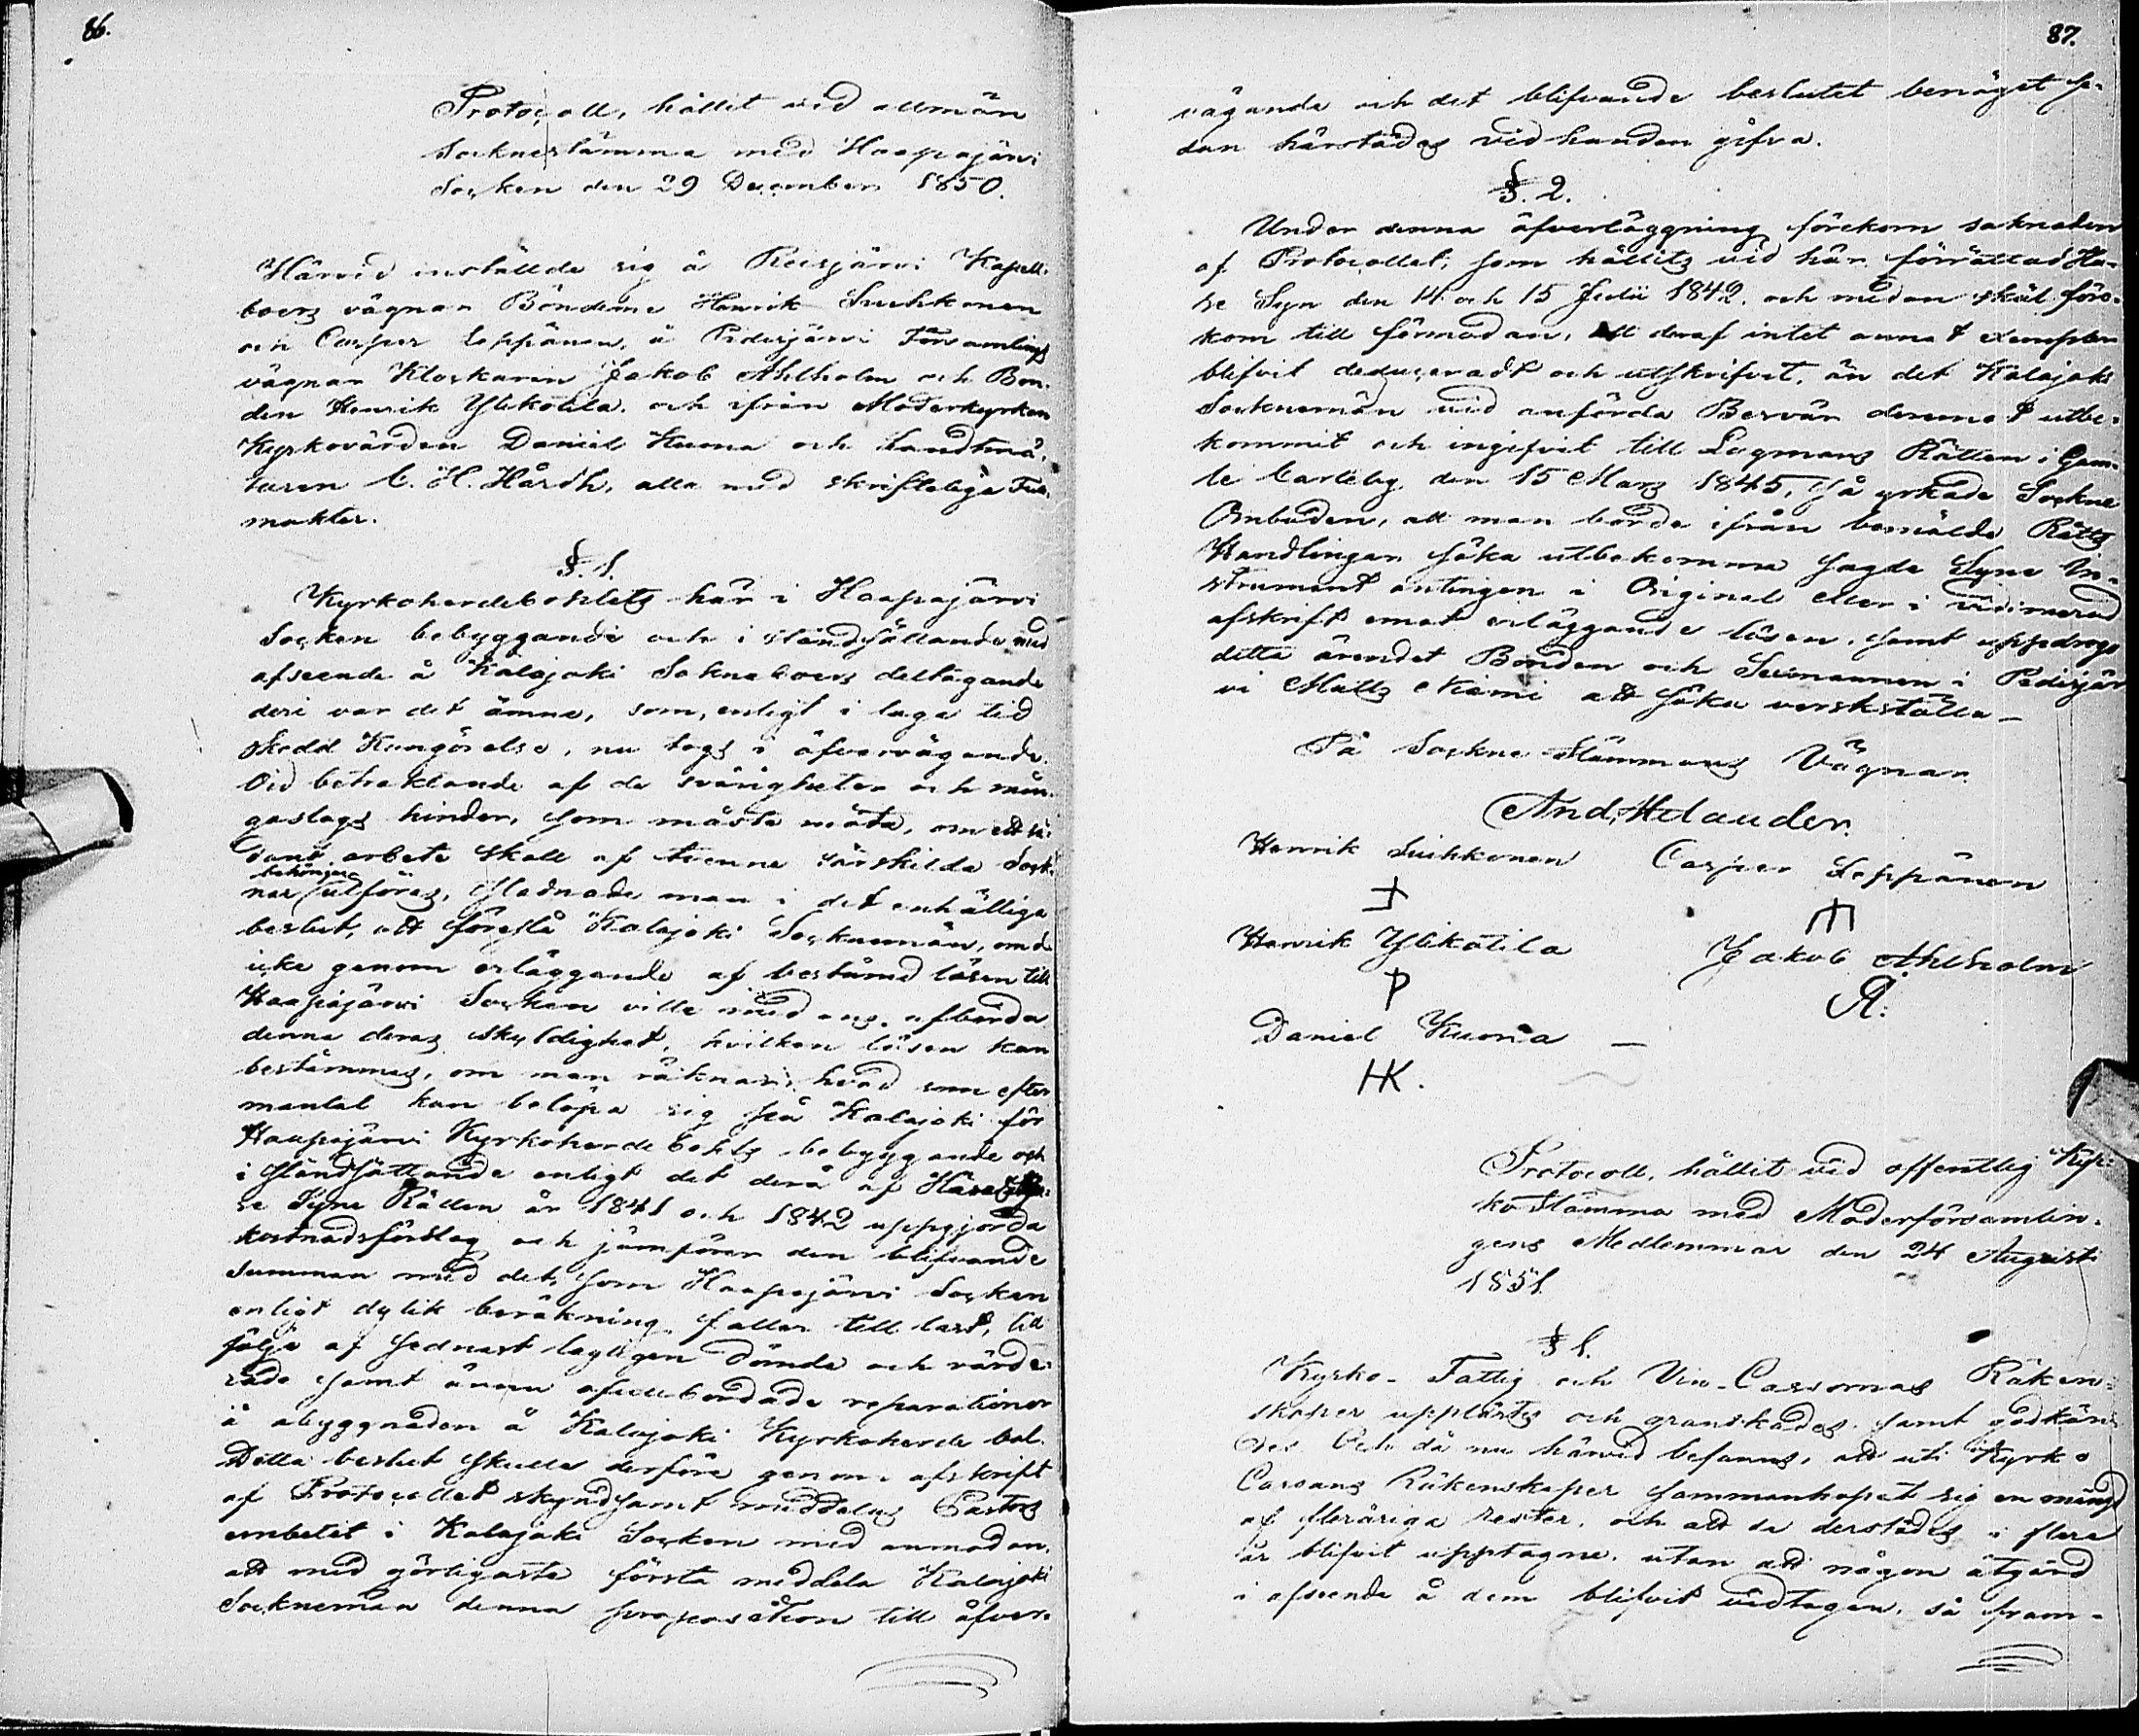 86.
Protocoll, hållet vid allmän
Sockne stämma med Haapajärvi
Socken den 29 December 1850.
Härvid inställde sig å Reisjärvi Kapell-
boers vägnar Bönderne Henrik Suihkonen
och Casper Leppänen, å Pidisjärvi Församlings
vägnar Klockaren Jakob Ahlholm och Bon-
den Henrik Ylikotila och ifrån Moderkyrkan
Kyrkovärden Daniel Kuona och Landtmä-
taren C. H. Hårdh, alla med skrifteliga Full-
makter.
§. 1.
Kyrkoherdebohlets här i Haapajärvi
Socken bebyggande och i ståndsättande med
afseende å Kalajoki Socknboers deltagande
deri var det ämne, som, enligt i laga tid
skedd Kungörelse, nu togs i öfvervägande.
Vid betraktande af de svårigheter och mån-
gaslags hinder, som måste möta, om ett så-
dant arbete skall af tvenne särskilda Sock-
nar behörigen utföras, stadnade man i det enhälliga
beslut, att föreslå Kalajoki Socknemän, om de
icke genom erläggande af bestämd lösen till
Haapajärvi Socken ville med ens afbörda
denna deras skyldighet, hvilken lösen kan
bestämmas, om man räknar, hvad som efter
mantal kan belöpa sig på Kalajoki för
Haapajärvi Kyrkoherde bohls bebyggande och
i ståndsättande enligt det derå af
se Syne Rätten år 1841 och 1842 uppgjorda
kostnadsförslag och jämförer den blifvande
summan med det, som Haapajärvi Socken
enligt dylik beräkning faller till last, till
följe af sednast lagligen dömda och värde-
rade samt ännu oafbördade reparationer
å åbyggnaden å Kalajoki Kyrkoherde bol.
Detta beslut skulle derföre genom afskrift
af Protocollet skyndsamt meddelas Pastors
embetet i Kalajoki Socken med anmodan,
att med görligaste första meddela Kalajoki
Socknemän denna proposition till öfver-
87.
vägande och det blifvande beslutet benäget se-
dan härstädes vid handen gifva.
§. 2.
Under denna öfverläggning förekom saknaden
af Protocollet, som hållits vid här förrättad Hu-
se Syn den 14 och 15 Julii 1842, och medan skäl före-
kom till förmodan, att deraf intet annat exemplar
blifvit deduceradt och utskrifvet, än det Kalajoki
Socknemän vid anförda Besvär deremot utbe-
kommit och ingifvit till Lagmans Rätten i Gam-
le Carleby den 15 Mars 1845, så yrkade Sockne
Ombuden, att man borde ifrån bemälde Rätts
Handlingar söka utbekomma sagde Syne In-
strument antingen i Original eller i vidimerad
afskrift emot erläggande lösen, samt uppdrogs
detta ärendet Bonden och Sexmannen i Pidisjär-
vi Matts Niemi att söka verkställa –
På Sockne Stämmans Vägnar.
And. Helander.
Henrik Suihkonen Casper Leppänen
Henrik Ylikotila Jakob Ahlholm
Daniel Kuona –
HK.
Protocoll, hållit vid offentlig Kyr-
ko Stämma med Moderförsamlin-
gens Medlemmar den 24 Augusti
1851.
§ 1.
Kyrko- Fattig och Vin-Cassornas Räken-
skaper upplästes och granskades samt godkän-
des. Och då nu härvid befanns, att uti Kyrko
Cassans Räkenskaper sammanhopat sig en mängd
af fleråriga rester, och att de derstädes i flera
år blifvit upptagne, utan att någon åtgärd
i afseende å dem blifvit vidtagen, så fram-